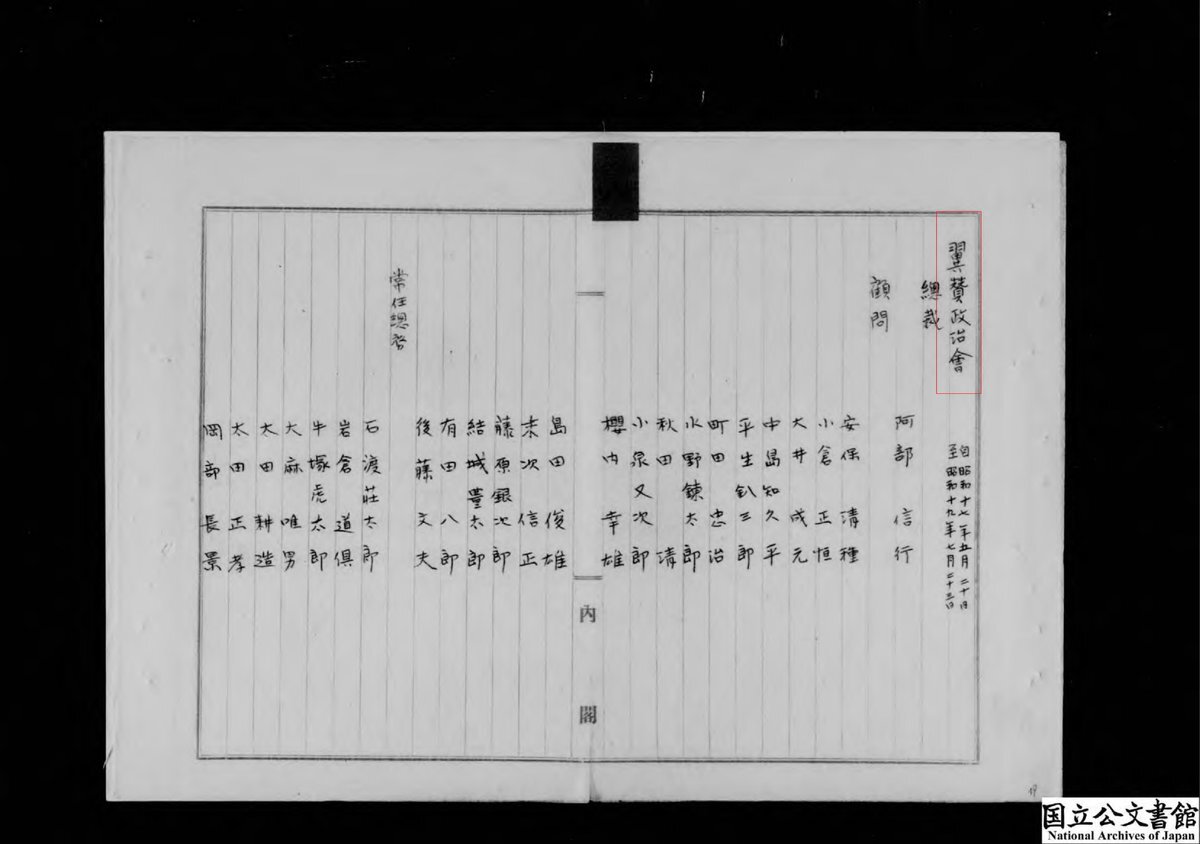 翼賛政治會
自昭和十七年五月二十日
至昭和十九年七月二十三日
總裁
阿部信行
顧問
安保清種
小倉正恒
大井成元
中島知久平
平生釟三郎
町田忠治
水野錬太郎
秋田清
小泉又次郎
櫻内幸雄
内閣
島田俊雄
末次信正
藤原銀次郎
結城豊太郎
有田八郎
後藤文夫
常任總務
石渡莊太郎
岩倉道倶
牛塚虎太郎
大麻唯男
太田耕造
太田正孝
岡部長景
19
国立公文書館
National Archives of Japan